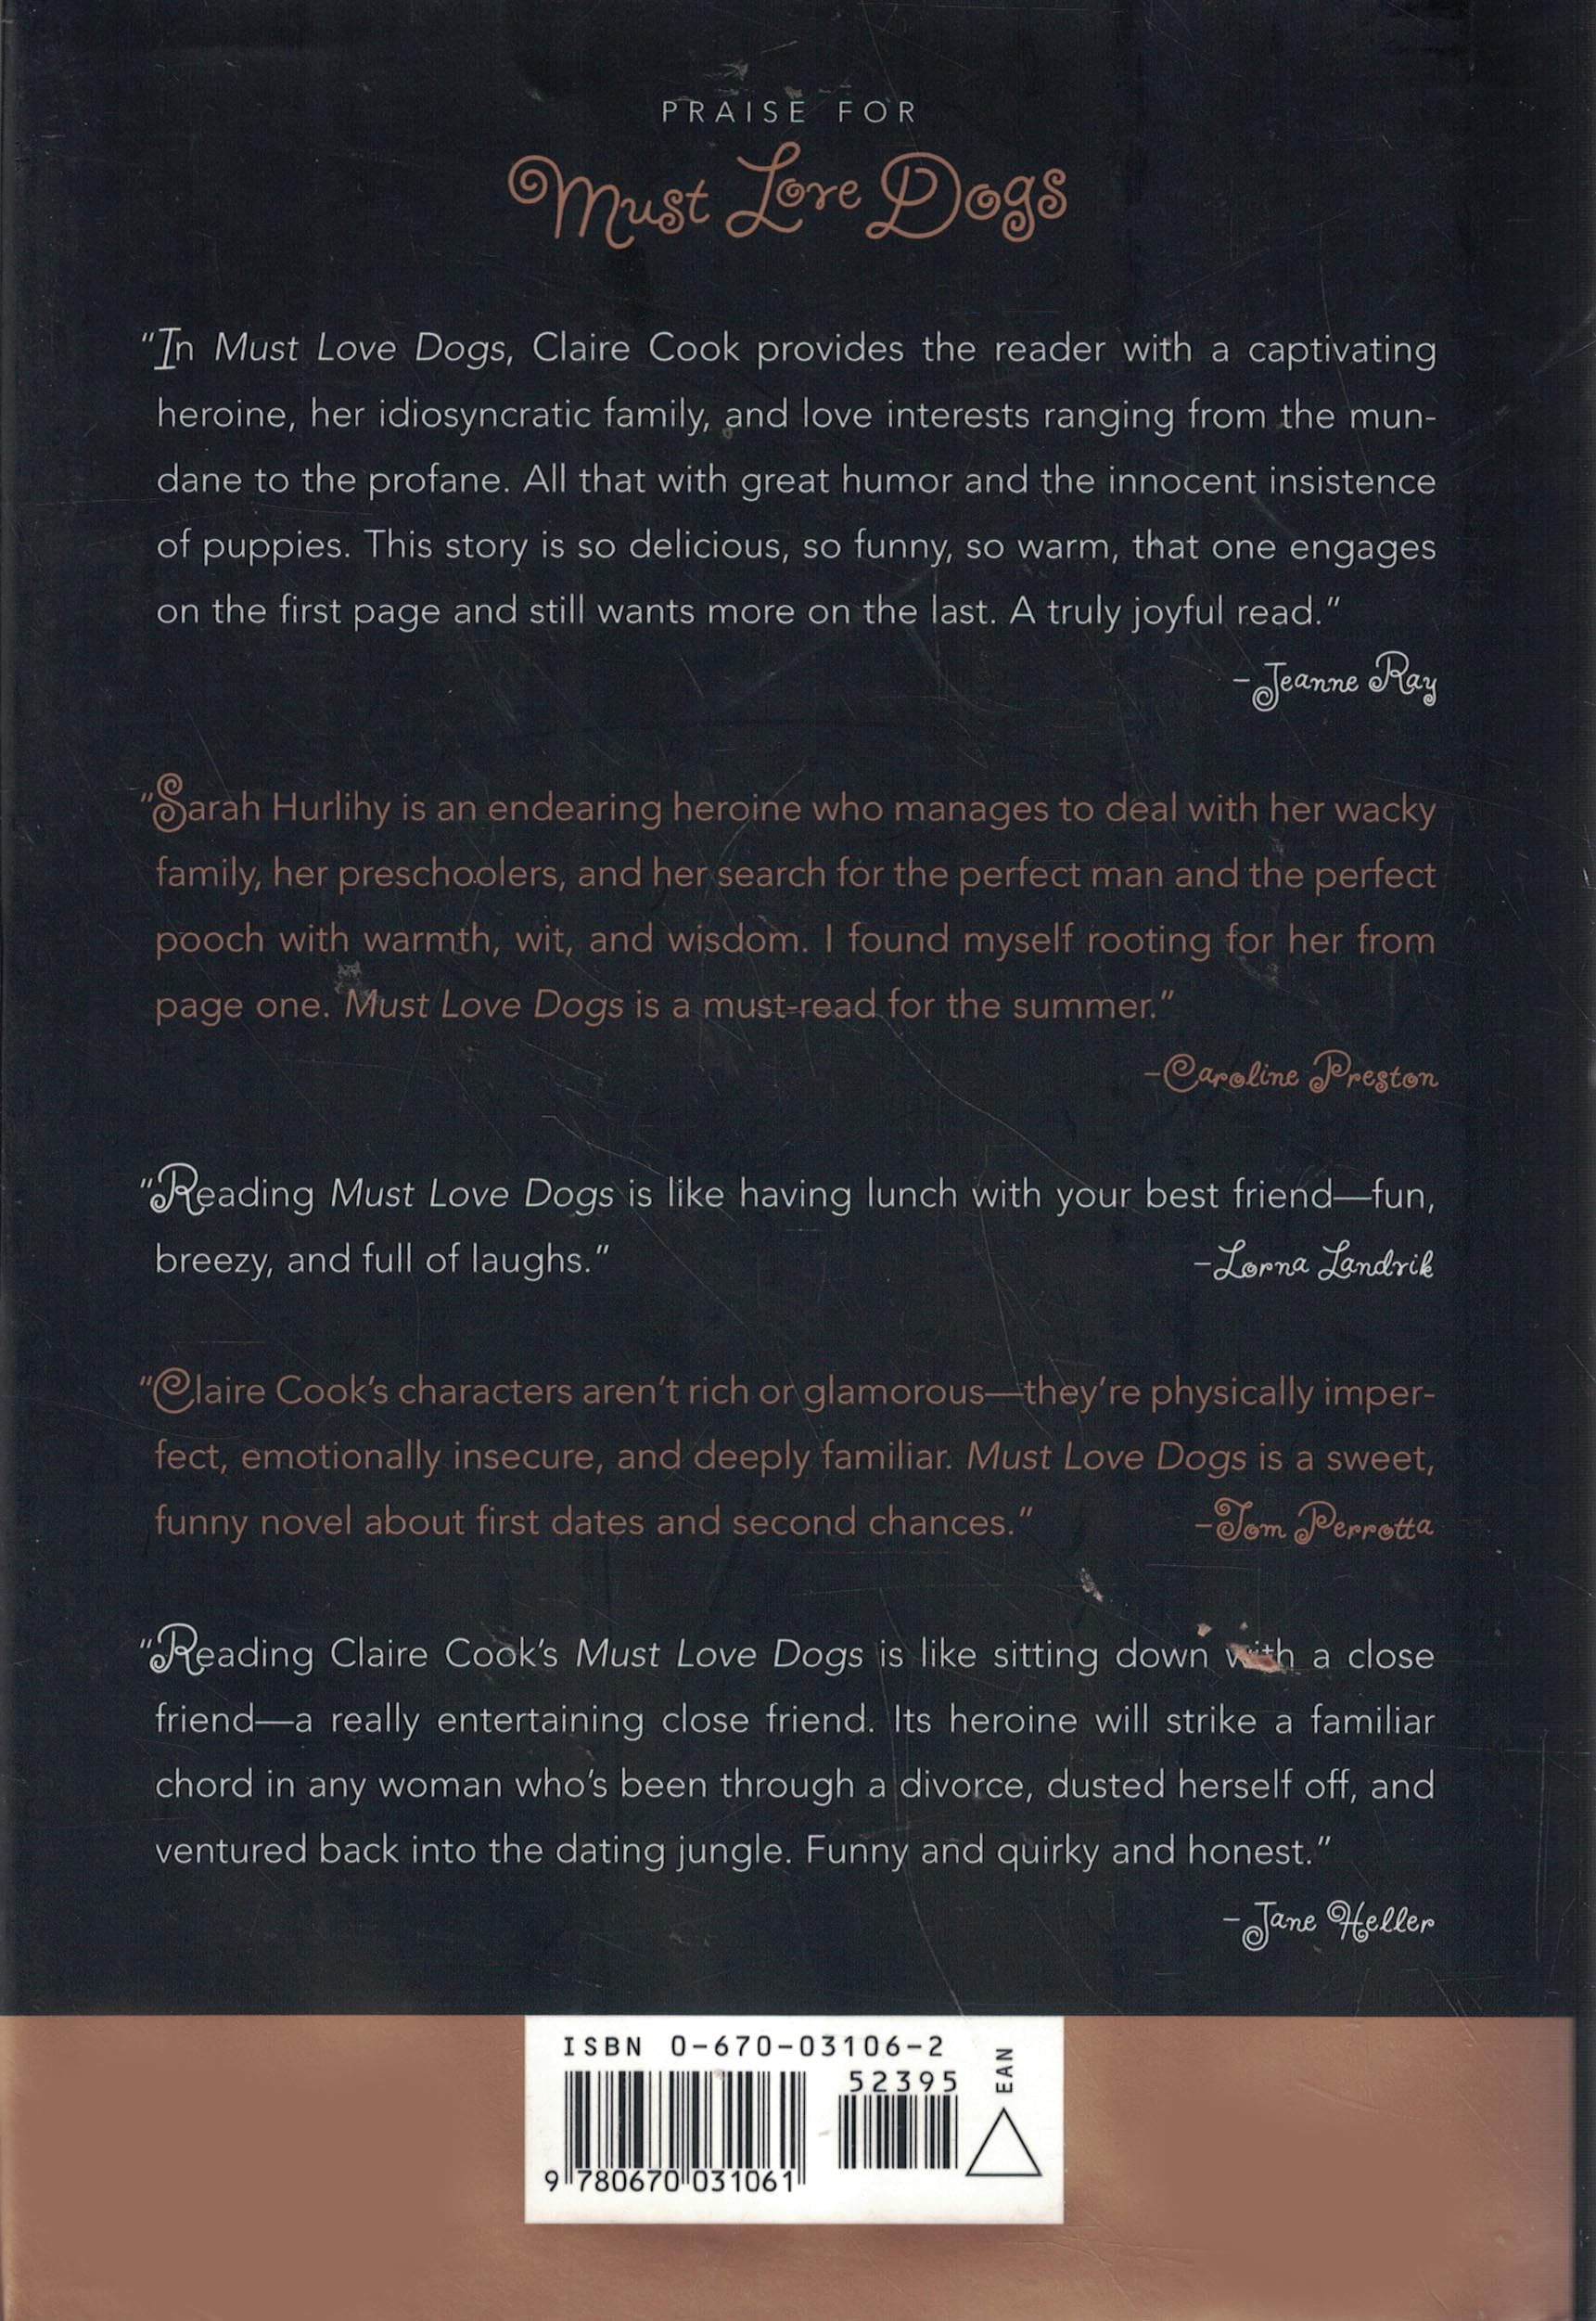 PRAISE FOR
Must Love Dogs
“In Must Love Dogs, Claire Cook provides the reader with a captivating
heroine, her idiosyncratic family, and love interests ranging from the mun-
dane to the profane. All that with great humor and the innocent insistence
of puppies. This story is so delicious, so funny, so warm, that one engages
on the first page and still wants more on the last. A truly joyful read.”
–Jeanne Ray
“Sarah Hurlihy is an endearing heroine who manages to deal with her wacky
family, her preschoolers, and her search for the perfect man and the perfect
pooch with warmth, wit, and wisdom. I found myself rooting for her from
page one. Must Love Dogs is a must-read for the summer.”
–Caroline Preston
“Reading Must Love Dogs is like having lunch with your best friend—fun,
breezy, and full of laughs.” –Lorna Landvik
“Claire Cook’s characters aren’t rich or glamorous—they’re physically imper-
fect, emotionally insecure, and deeply familiar. Must Love Dogs is a sweet,
funny novel about first dates and second chances.” –Tom Perrotta
“Reading Claire Cook’s Must Love Dogs is like sitting down with a close
friend—a really entertaining close friend. Its heroine will strike a familiar
chord in any woman who’s been through a divorce, dusted herself off, and
ventured back into the dating jungle. Funny and quirky and honest.”
–Jane Heller
ISBN 0-670-03106-2
52395
EAN
9 780670 031061